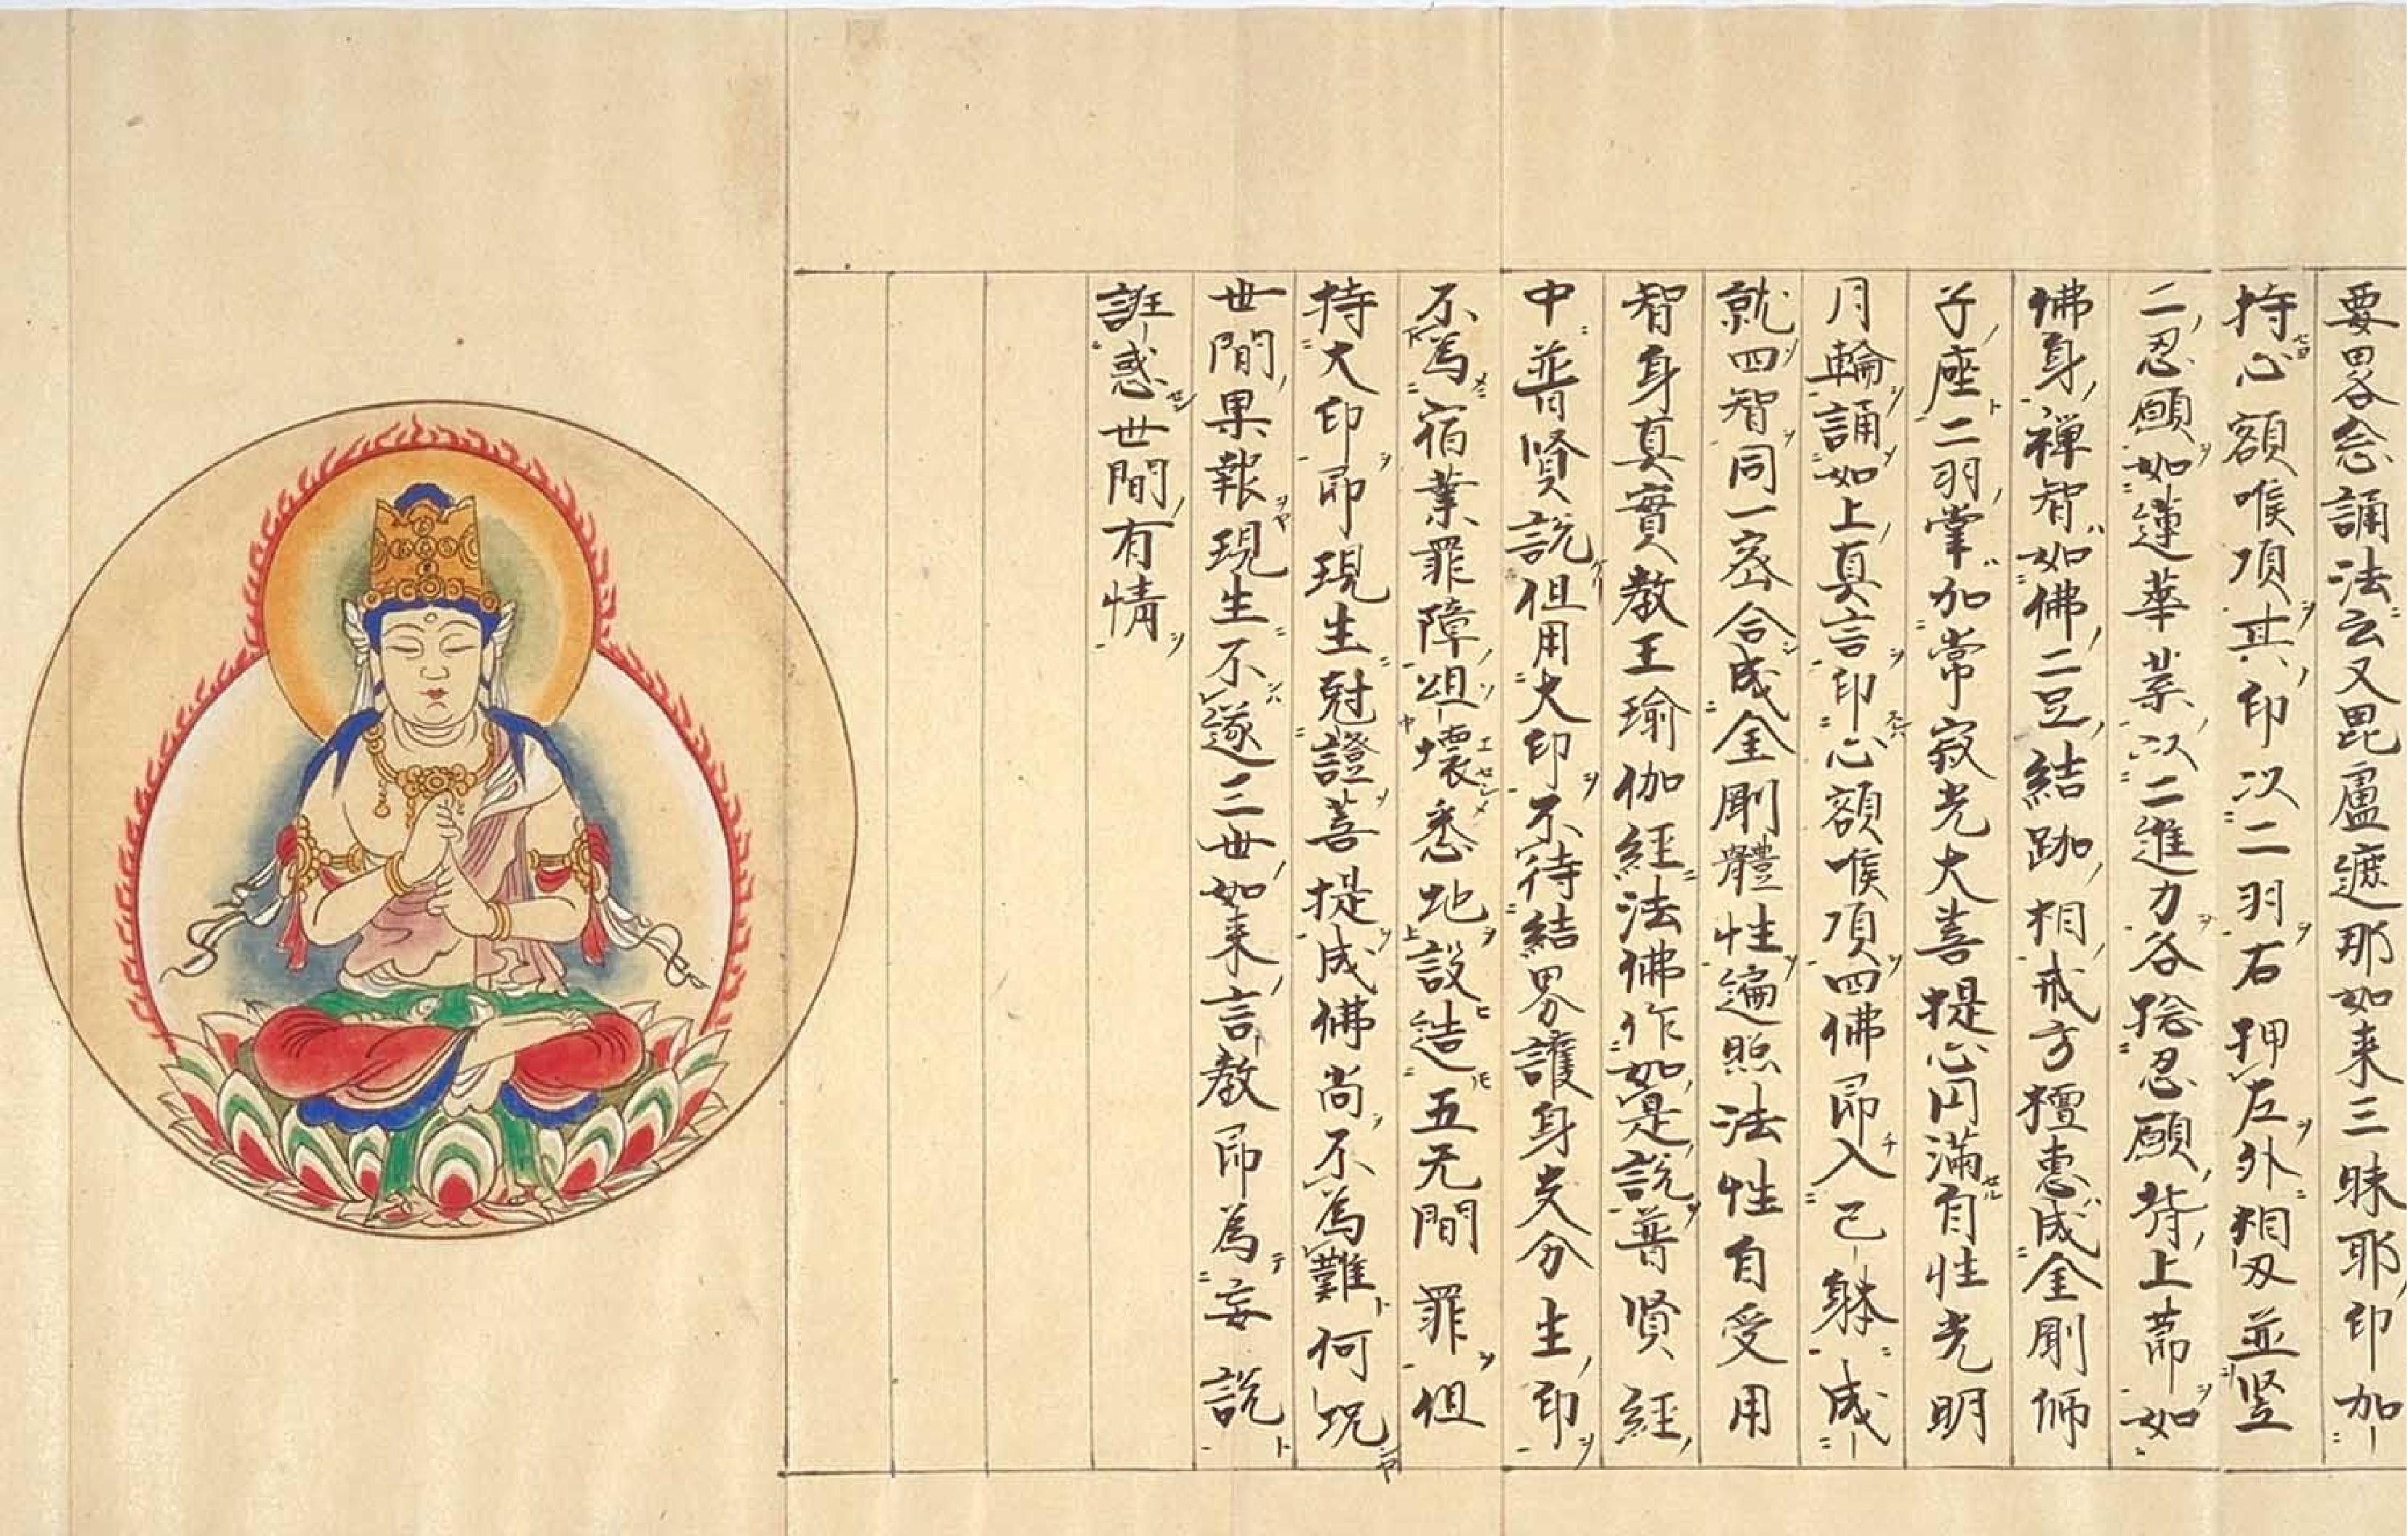 要畧念誦法云又毘盧遮那如来三昧耶印加
持心額喉項其印以二羽右押左外相叉並竪
二忍願如蓮華葉以二進力各捻忍願背上莭如
佛身禅智如佛二豆結跏相戒方檀惠成金剛師
子座二羽掌加常寂光大菩提心円満自性光明
月輪誦如上真言印心額喉項四佛即入己躰成
就四智同一密合成金剛體性遍照法性自受用
智身真實教王瑜伽経法佛作如是説普賢経
中普賢説但用大印不待結界護身支分生印
不為宿業罪障俎壊悉地設造五无間罪但
持大印即現生尅證菩提成佛尚不為難何况
世間果報現生不遂三世如来言教即為妄説
誑惑世間有情